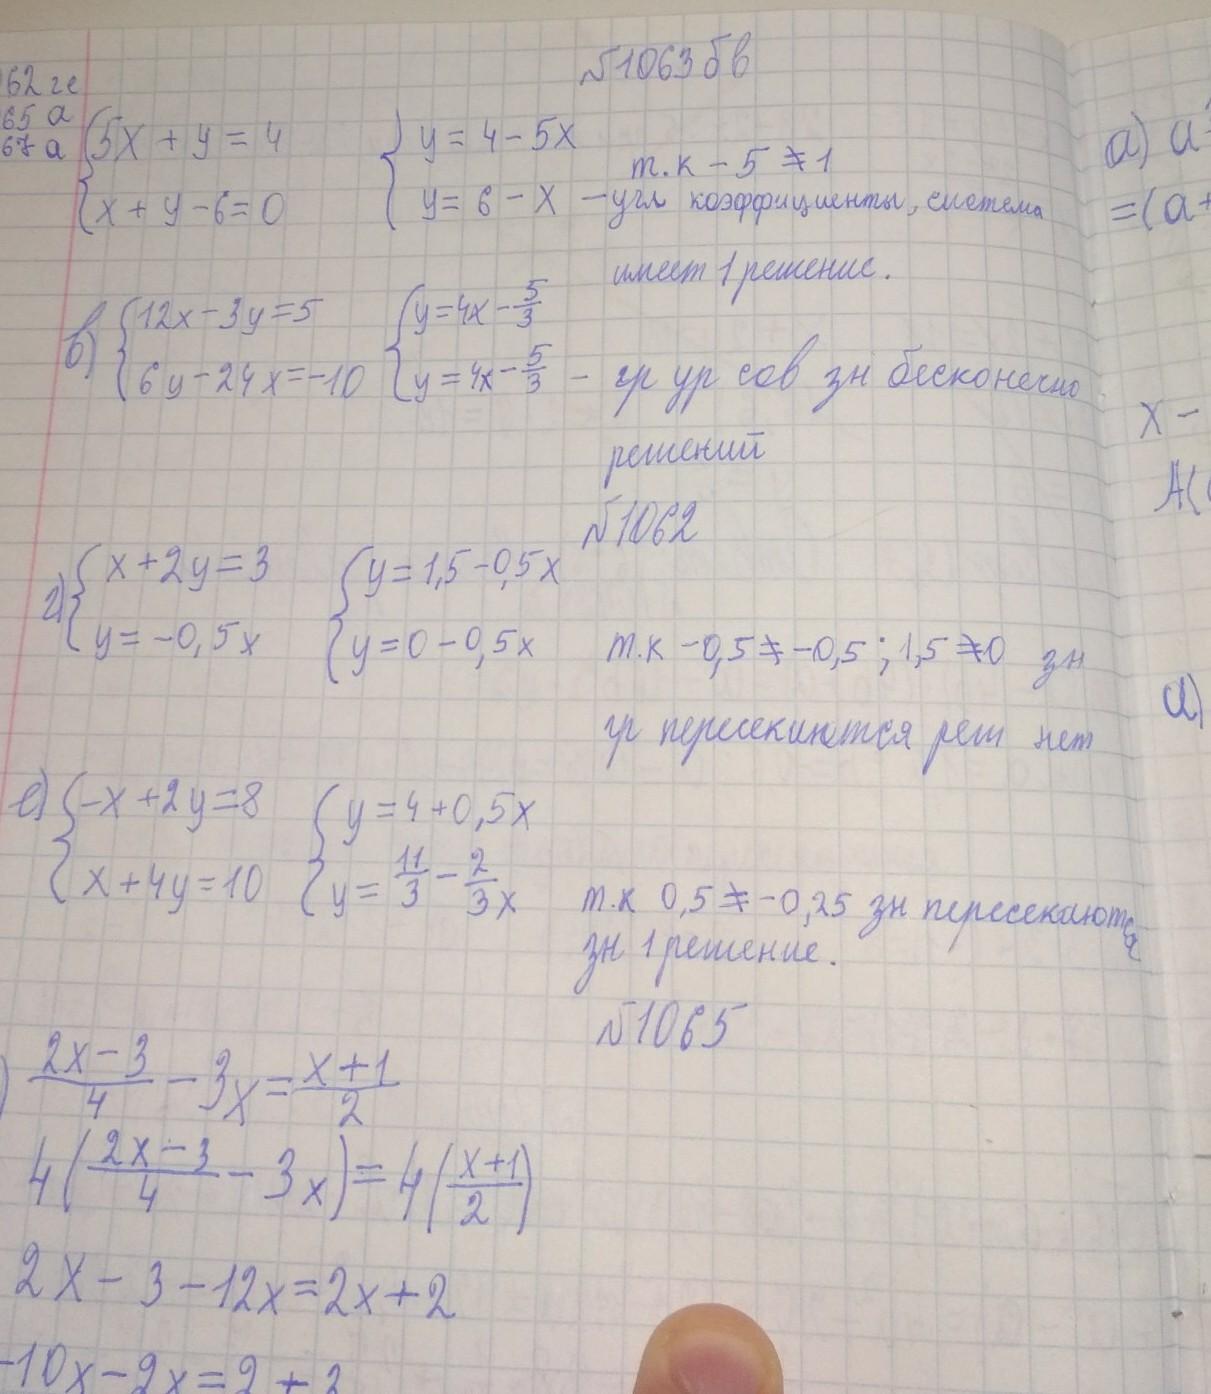 №1063 б в
62 г е
65 а
67 а
{5x + y = 4 {y = 4 - 5x
{x + y - 6 = 0 {y = 6 - x
т.к - 5 ≠ 1
- угл коэффициенты, система
имеет 1 решение.
в) {12x - 3y = 5 {y = 4x - 5/3
{6y - 24x = -10 {y = 4x - 5/3 - гр ур сов зн бесконечно
решений
№1062
г) {x + 2y = 3 {y = 1,5 - 0,5x
{y = -0,5x {y = 0 - 0,5x т.к -0,5 ≠ -0,5 ; 1,5 ≠ 0 зн
гр пересекаются реш нет
е) {-x + 2y = 8 {y = 4 + 0,5x
{x + 4y = 10 {y = 11/3 - 2/3 x т.к 0,5 ≠ -0,25 зн пересекаются
зн 1 решение.
№1065
) (2x - 3)/4 - 3x = (x + 1)/2
4((2x - 3)/4 - 3x) = 4((x + 1)/2)
2x - 3 - 12x = 2x + 2
-10x - 2x = 2 + 3
а) a
= (a +
x -
A(